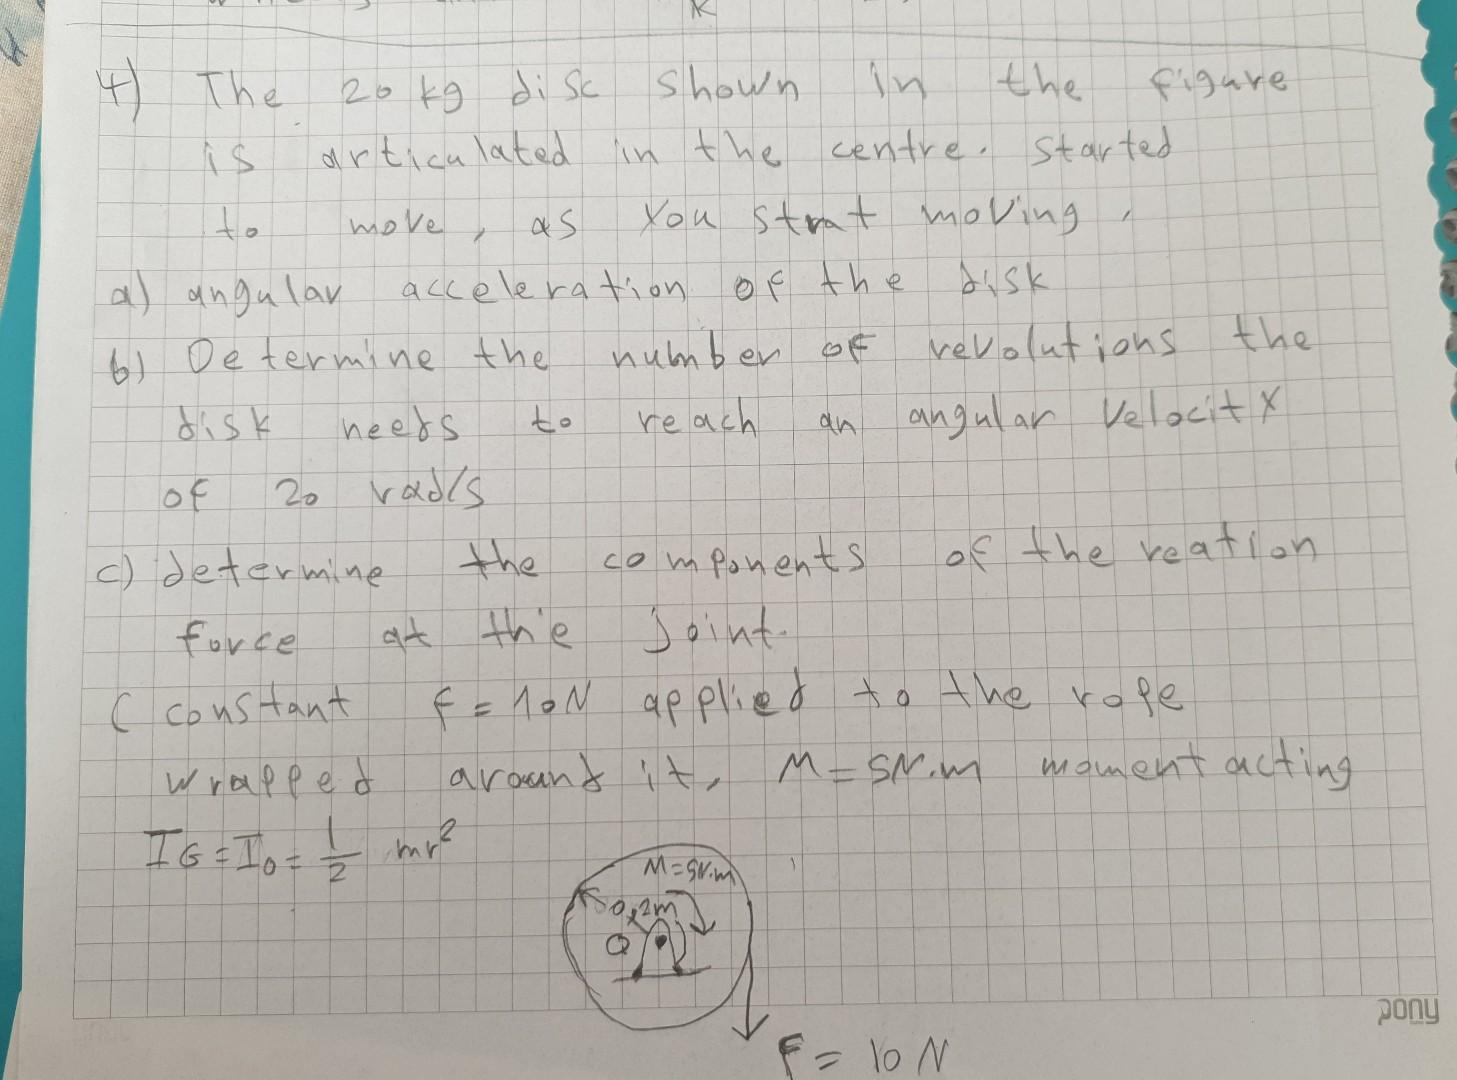 4) The 20 kg disc shown in the figure
is articulated in the centre. started
to move, as you strat moving,
a) angular acceleration of the disk
b) Determine the number of revolutions the
disk needs to reach an angular velocity
of 20 rad/s
c) determine the components of the reation
force at the joint.
( constant F = 10N applied to the rope
wrapped around it, M = 5N.m moment acting
IG = I0 = 1/2 mr²
M=5N.m
0,2m
O
F = 10 N
pony